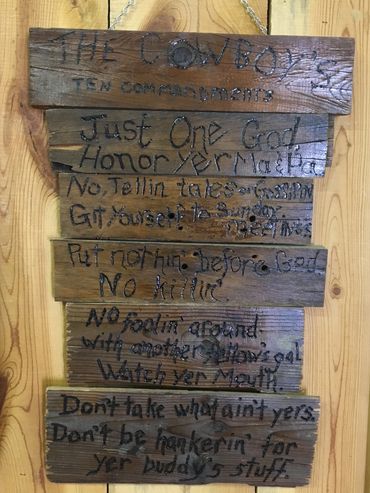 THE COWBOY'S
TEN COMMANDMENTS
Just One God
Honor yer Ma & Pa
No Tellin tales or GOSSIPIN
Git yourself to Sunday
MEETINGS
Put nothin' before God
No killin'.
No foolin' around
with another fellow's gal
Watch yer Mouth
Don't take what ain't yers.
Don't be hankerin' for
yer buddy's stuff.